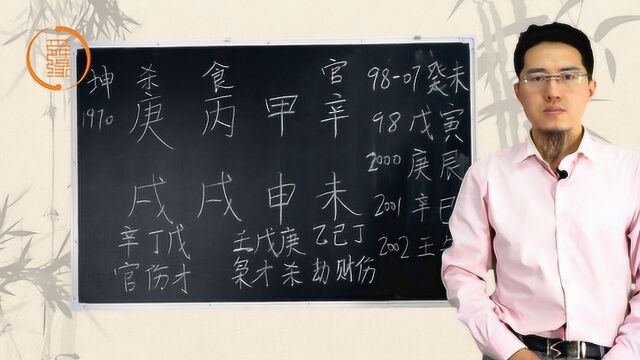 坤 杀 食 官 98-07癸未
1970 庚 丙 甲 辛 98 戊寅
2000 庚辰
戌 戌 申 未 2001 辛巳
辛丁戊 壬戊庚 乙己丁 2002 壬
官伤才 枭才杀 劫财伤